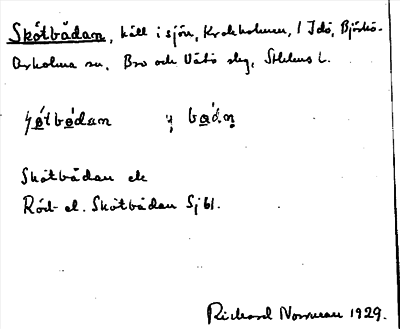 Skötbådan, häll i sjön, Krokholmen, 1 Idö, Björkö-
Arholma sn, Bro och Vätö skg, Sthlms l.
Skötbådan ek
Röd- el. Skötbådan Sjbl.
Richard Norrman 1929.